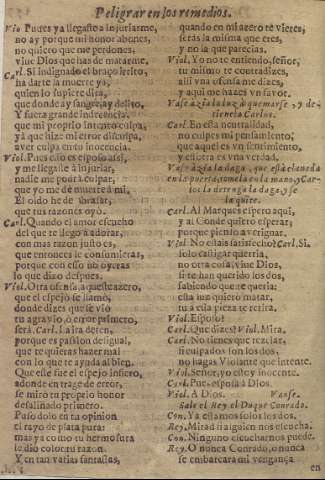 Peligrar en los remedios.
Vio. Pues ya llegaste a injuriarme,
no ay porque mi honor abones,
no quiero que me perdones,
viue Dios que has de matarme.
Carl. Si indignado el braço irrito,
ha darte la muerte ya,
quien lo supiere dirà,
que donde ay sangre, ay delito,
Y fuera grande indecencia,
que mi proprio
ya que hize mi error
auer culpa en tu inocencia.
Viol. Pues esso es esposo assi,
y me llegaste a injuriar,
nadie me podrà culpar,
que yo me dè muerte a mi.
El oido he de
que tus razones oyò.
Carl. Quando el amor escucho
del que te llegò a adorar,
con mas razon justo es,
que entonces le consumieras,
porque con esso no oyeras
lo que dixo despues.
Viol. Otra ofensa, aqueste azero,
que el espejo se llamò,
donde dizes que se viò
tu agrauio, ò error primero,
serà. Carl. La ira detèn,
porque es passion desigual,
que te quieras hazer mal
con lo que te ayuda al bien.
Que esse fue el espejo infiero,
adonde en trage de error,
se mirò tu proprio honor
desaliñado primero.
Pusolo en tu opinion
el rayo de plata pura:
mas ya como tu hermosura
le diò color tu razon.
Y en tan varias fantasias,
quando en mi azero te vieres,
seràs la misma que eres,
y no la que parecias.
Viol. Yo no te entiendo, señor,
tu mismo te contradizes,
alli vna ofensa me dizes,
y aqui me hazes vn fauor.
Vase àzia la luz à quemarse, y detiencla Carlos.
Carl. En esta neutralidad,
no culpes mi pensamiento,
que aquel es vn sentimiento,
y estotra es vna verdad.
Vase àzia la daga, que està clauada
en la puerta, tomala en la mano, y Carlos
la detenga la daga, y se
la quite.
Carl. Al Marques espero aqui,
y al Conde quiero esperar,
porque pienso aueriguar,
Viol. No estais satisfecho? Carl. Si.
solo castigar querria,
no otra cosa, viue Dios,
si te han querido los dos,
sabiendo que te queria:
esta luz quiero matar,
tu à essa pieza te retira.
Viol. Esposo!
Carl. Que dizes? Viol. Mira.
Carl. No tienes que rezelar,
si culpados son los dos,
no hagas Violante que intente.
Viol. Señor, yo estoy inocente.
Carl. Pues, esposa à Dios.
Viol. A Dios. Vanse.
Sale el Rey, el Duque Conrado.
Con. Ya estamos solos los dos.
Rey. Mirad si alguien nos escucha.
Con. Ninguno escucharnos puede.
Rey. O nunca Conrado, o nunca
se embarcara mi vengança
en